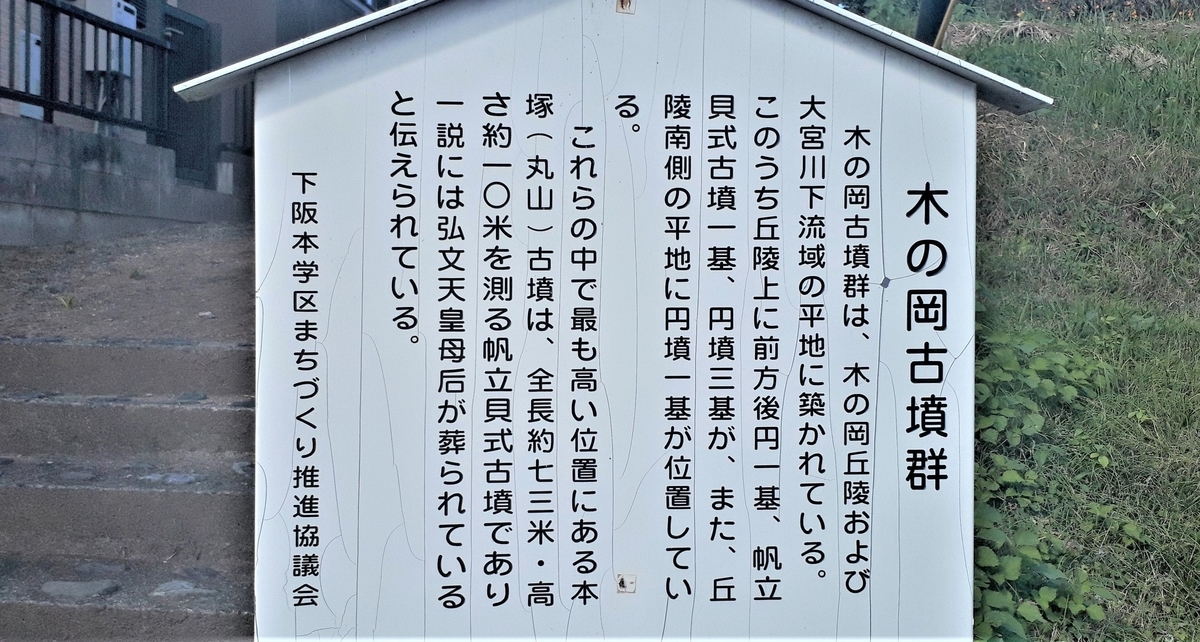 木の岡古墳群
木の岡古墳群は、木の岡丘陵および
大宮川下流域の平地に築かれている。
このうち丘陵上に前方後円一基、帆立
貝式古墳一基、円墳三基が、また、丘
陵南側の平地に円墳一基が位置してい
る。
これらの中で最も高い位置にある本
塚(丸山)古墳は、全長約七三米・高
さ約一〇米を測る帆立貝式古墳であり
一説には弘文天皇母后が葬られている
と伝えられている。
下阪本学区まちづくり推進協議会